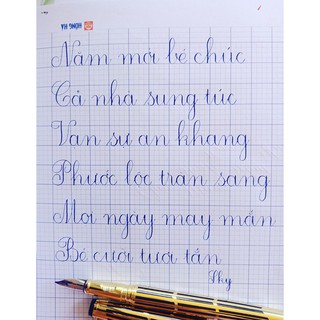 HỒNG HÀ
Năm mới bé chúc
Cả nhà sung túc
Vạn sự an khang
Phước lộc tràn sang
Mọi ngày may mắn
Bé cười tươi tắn
Thy